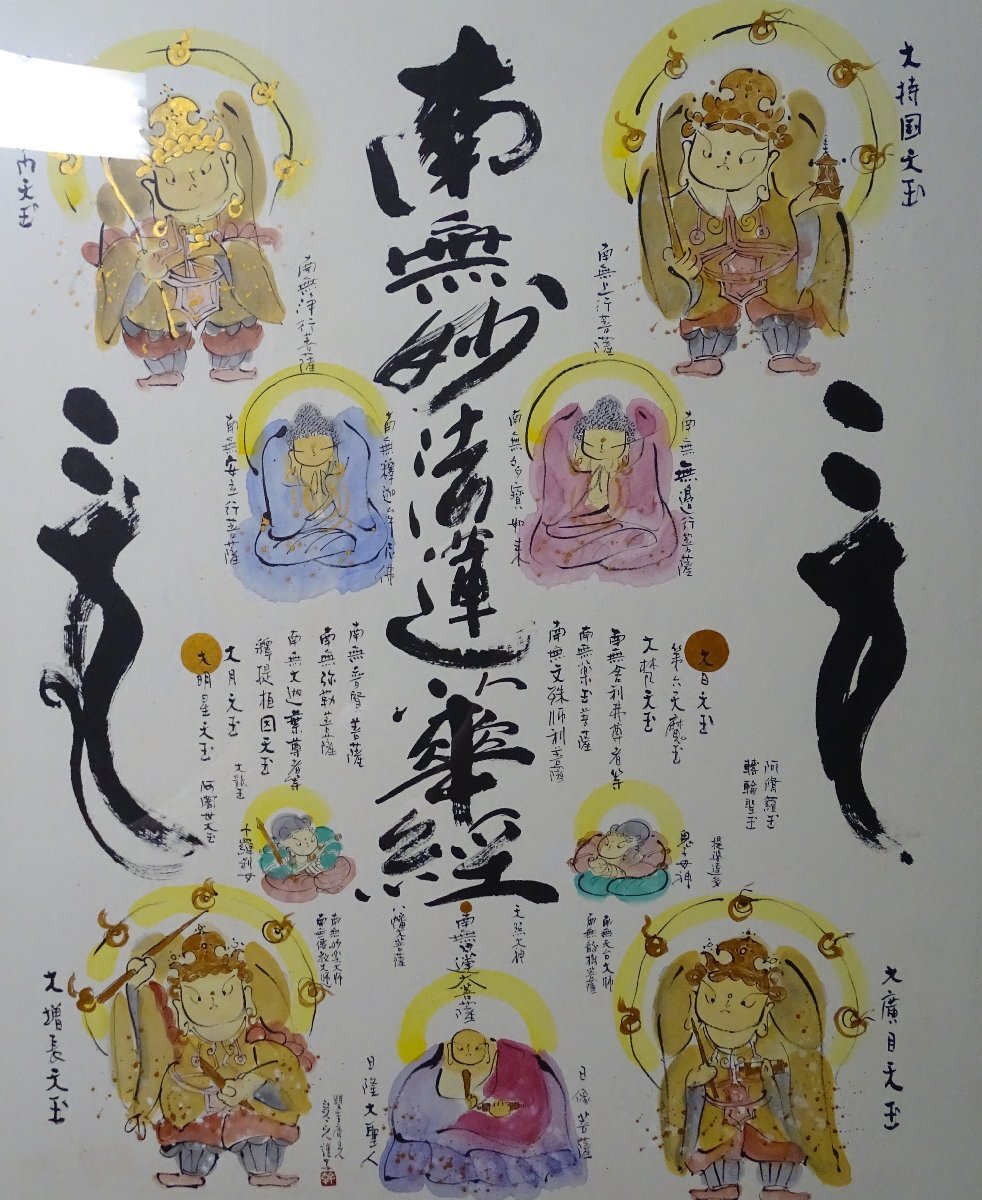 南無妙法蓮華經
大持国天玉
南無上行菩薩
南無無邊行菩薩
南無多寶如来
南無浄行菩薩
南無安立行菩薩
大日天玉
第六天魔玉
大梵天玉
南無舎利弗尊者等
南無薬玉菩薩
南無文殊師利菩薩
南無普賢菩薩
南無弥勒菩薩
南無大迦葉尊者等
釋提桓因天玉
大月天玉
大明星天玉
阿脩羅玉
轉輪聖玉
提婆達多
鬼子母神
十羅刹女
大龍玉
阿闍世大玉
天照大神
八幡大菩薩
南無天台大師
南無龍樹菩薩
南無妙楽大師
南無傳教大師
南無日蓮大菩薩
大廣目天玉
大増長天玉
日像菩薩
日隆大聖人